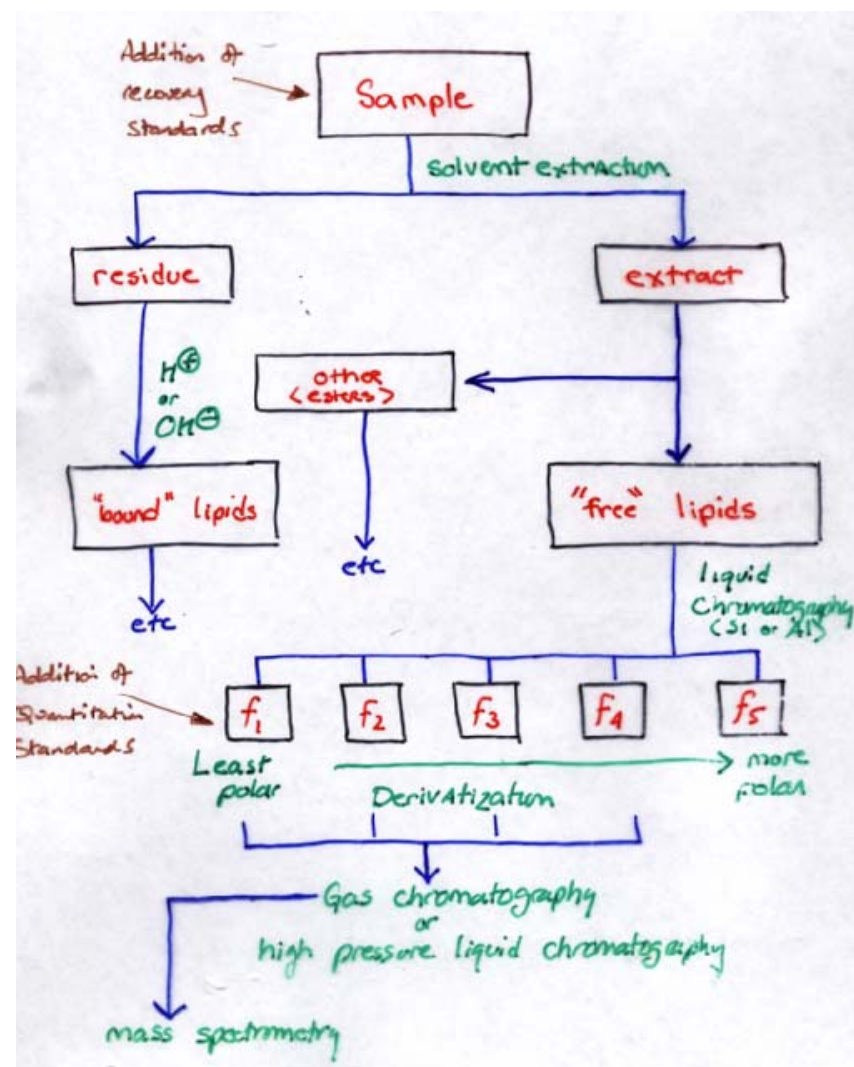 Addition of
recovery
Standards
Sample
solvent extraction
residue
extract
H⊕
or
OH⊖
other
<esters>
"bound" lipids
"free" lipids
etc
etc
liquid
Chromatography
(Si or Al)
Addition of
Quantitation
Standards
f1
f2
f3
f4
f5
Least
polar
more
polar
Derivatization
Gas chromatography
or
high pressure liquid chromatography
mass spectrometry